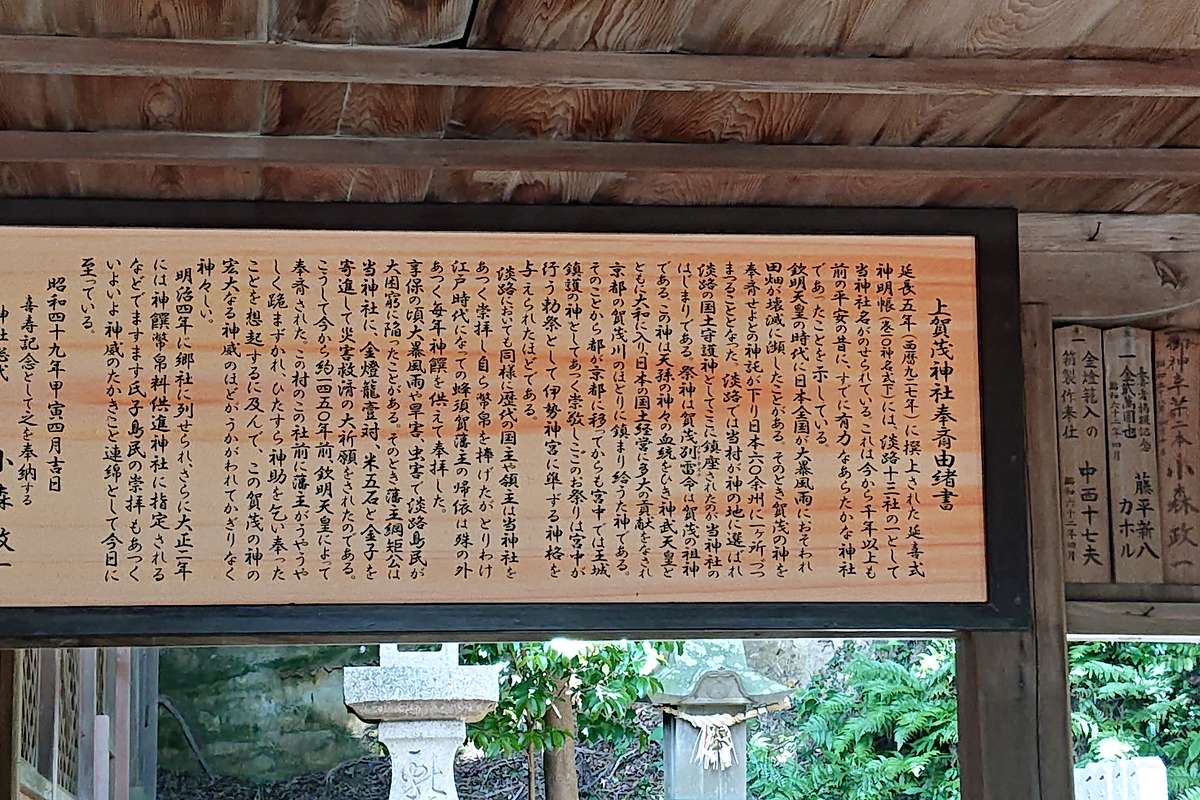 上賀茂神社奉斎由緒書
延長五年(西暦九二七年)に撰上された延喜式
神明帳(巻一〇神名式下)には、淡路十三社の一として
当神社名がのせられている。これは今から千年以上も
前の平安の昔に、すでに有力なあらたかな神社
であったことを示している。
欽明天皇の時代に日本全国が大暴風雨におそわれ
田畑が壊滅に瀕したことがある。そのとき賀茂の神を
奉斎せよとの神託が下り日本六〇余州に一ヶ所づつ
まつることとなった。淡路では当村が神の地に選ばれ
淡路の国土守護神としてここに鎮座されたのが当神社の
はじまりである。祭神は賀茂別雷命は賀茂の祖神
である、この神は天孫の神々の血統をひき神武天皇と
ともに大和に入り日本の国土経営に多大の貢献をなされ
京都の賀茂川のほとりに鎮まり給うた神である。
そのことから都が京都に移ってからも宮中では王城
鎮護の神としてあつく崇敬しここのお祭りは宮中が
行う勅祭として伊勢神宮に準ずる神格を
与えられたほどである。
淡路においても同様に歴代の国主や領主は当神社を
あつく崇拝し自ら幣帛を捧げたがとりわけ
江戸時代になっての蜂須賀藩主の帰依は殊の外
あつく毎年神饌を供えて奉拝した。
享保の頃大暴風雨や旱害、虫害で淡路島民が
大困窮に陥ったことがある。そのとき藩主綱矩公は
当神社に、金燈籠壹対、米五石と金子を
寄進して災害救済の大祈願をされたのである。
こうして今から約一四五〇年前、欽明天皇によって
奉斎された、この村のこの社前に藩主がうやうや
しく跪まずかれ、ひたすら神助を乞い奉った
ことを想起するに及んで、この賀茂の神の
宏大なる神威のほどがうかがわれてかぎりなく
神々しい。
明治四年に郷社に列せられ、さらに大正二年
には神饌幣帛料供進神社に指定される
などでますます氏子島民の崇拝もあつく
いよいよ神威のたかきこと連綿として今日に
至っている。
昭和四十九年甲寅四月吉日
喜寿記念として之を奉納する
神社総代
小森政一
小森政一
一金
藤平新八
カホル
金燈籠入の
箱製作奉仕
中西十七夫
昭和六十二年四月